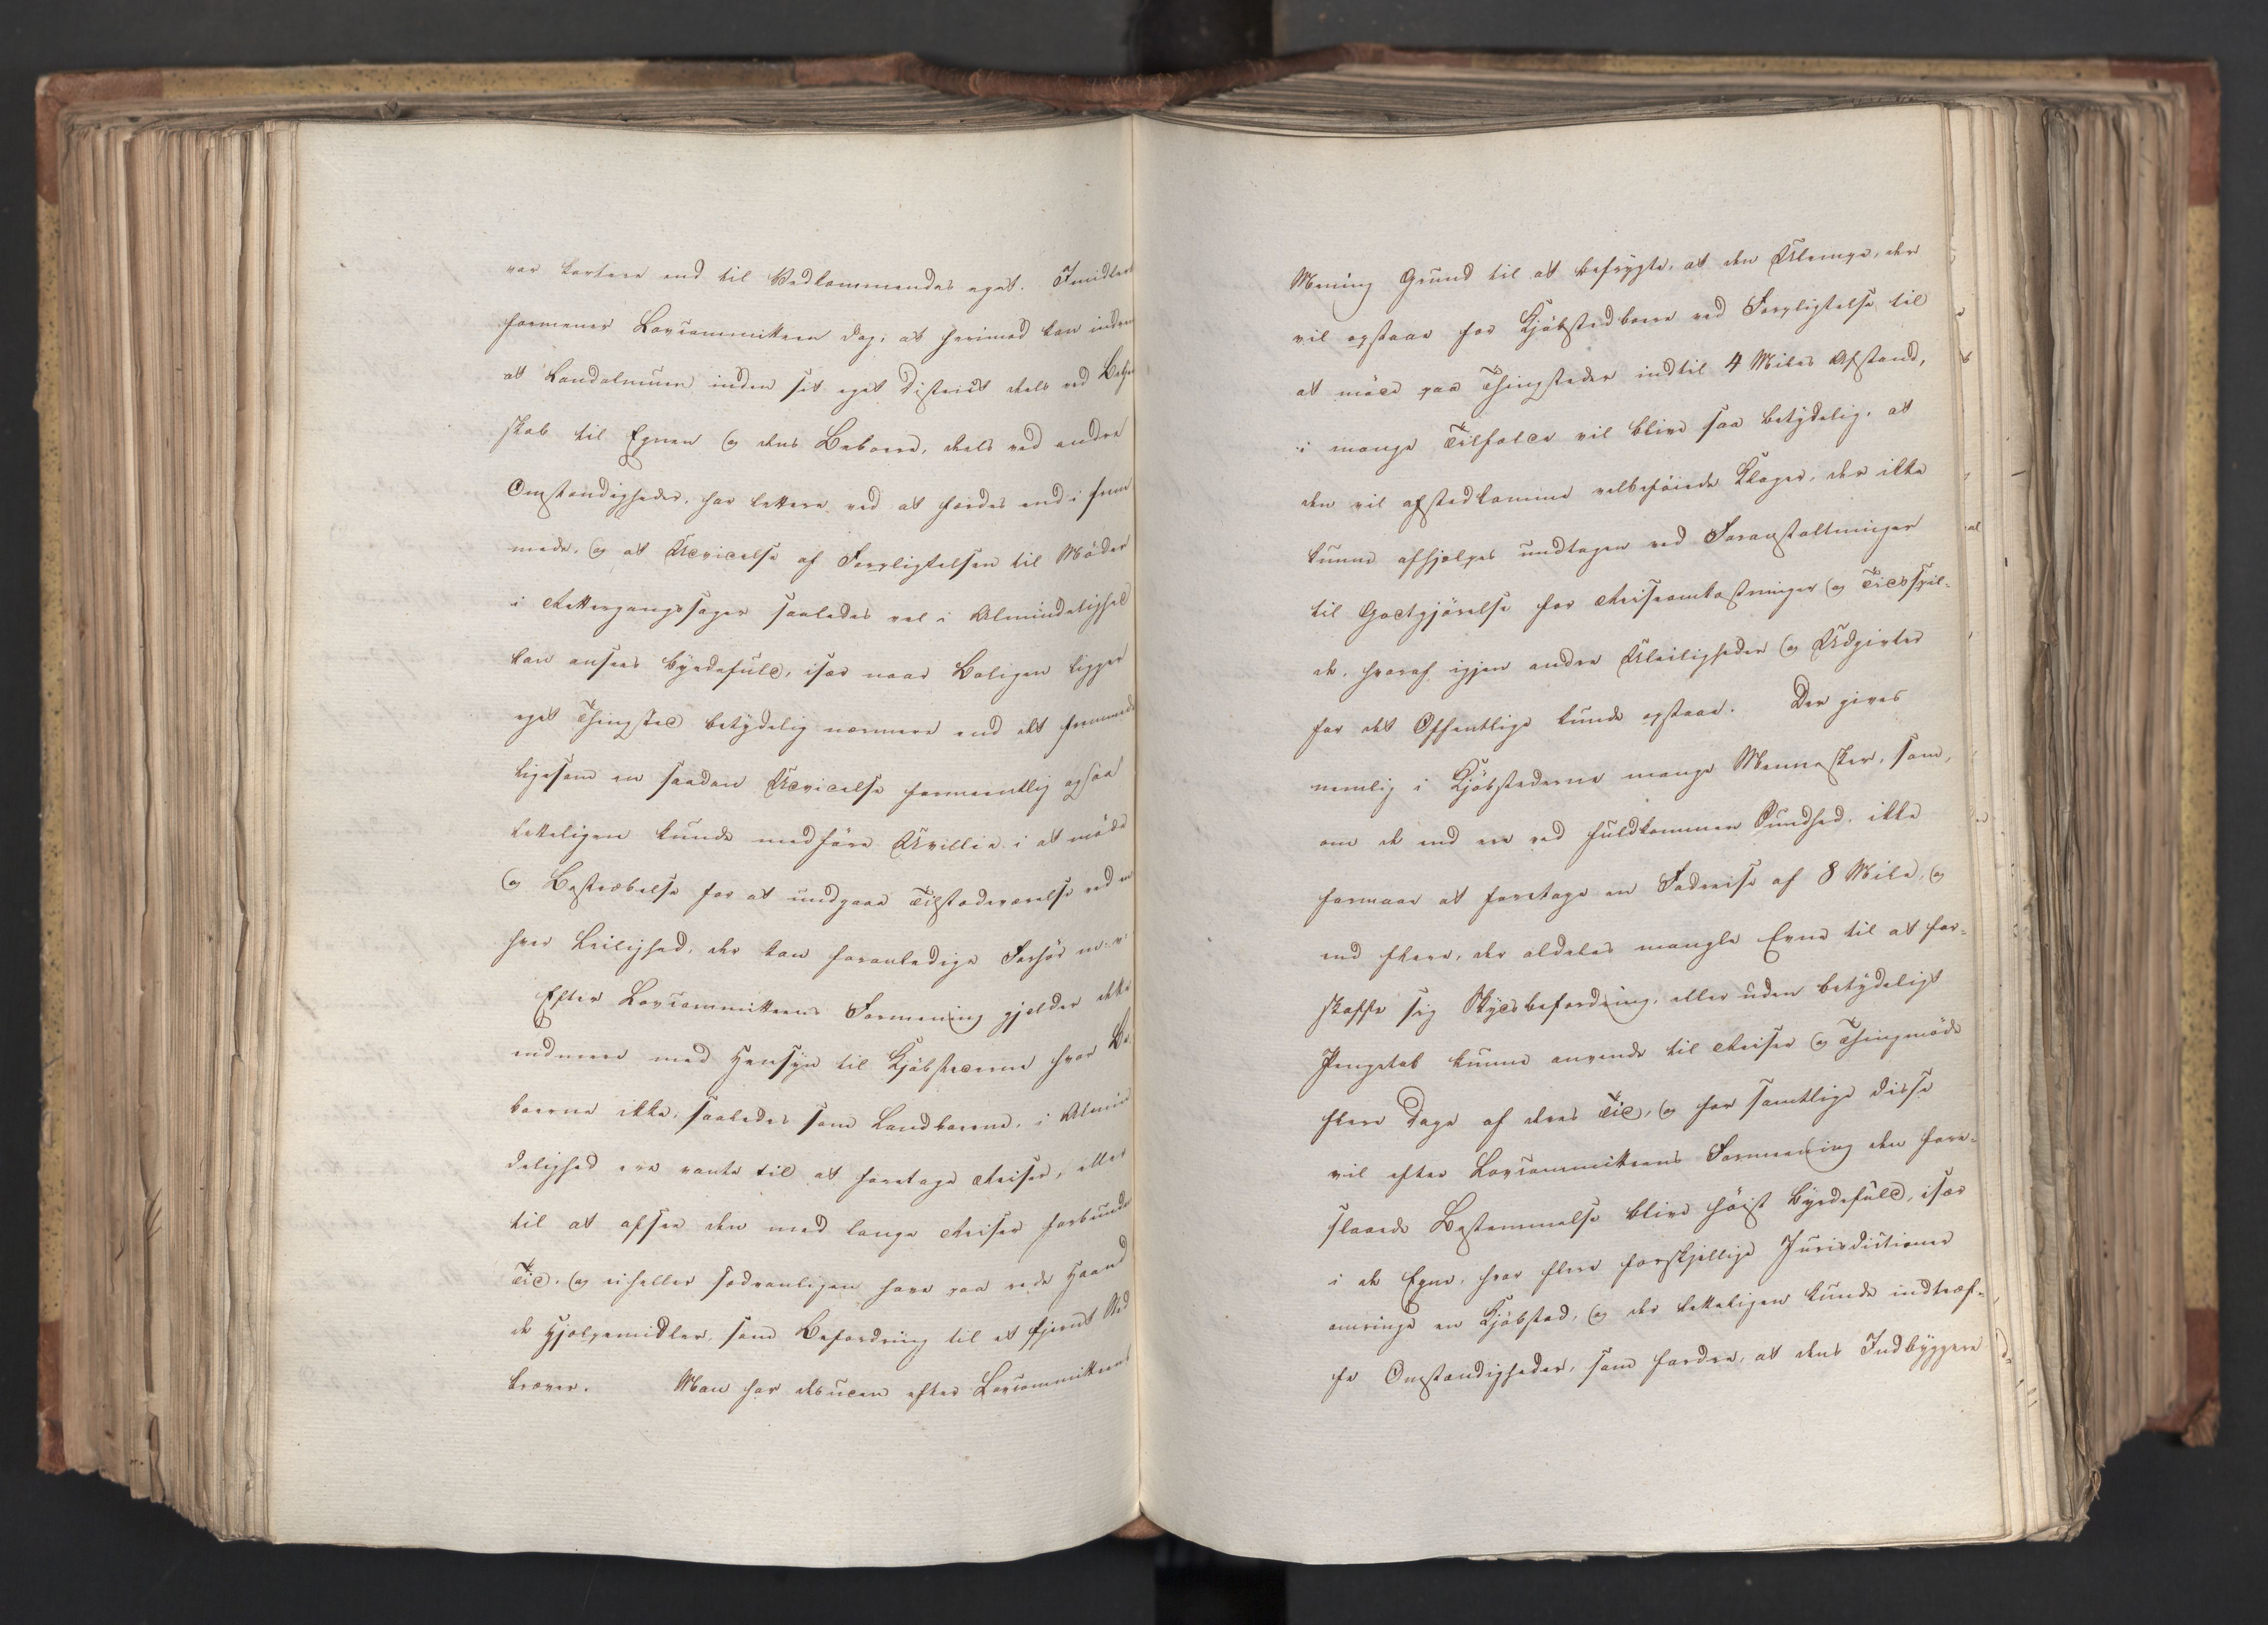 var kortere end til Vedkommendes eget. Imidlert
formener Lovcommitteen dog, at herimod kan indve
at Landalmuen inden sit eget District dels ved Bekjen
skab til Egnen og dens Beboere, dels ved andre
Omstændigheder, har lettere ved at færdes end i frem
mede, og at Udvidelse af Forpligtelsen til Möder
i Rettergangssager saaledes vel i Almindelighed
kan ansees byrdefuld, især naar Boligen ligger
eget Thingsted betydelig nærmere end det fremmede
ligesom en saadan Udvidelse formeentlig ogsaa
letteligen kunde medföre Uvillie i at möde
og Bestræbelse for at undgaae Tilstedeværelse ved en
hver Leilighed, der kan foranledige Forhör m. v.
Efter Lovcommitteens Formening gjelder dette
endmere med Hensyn til Kjöbstæderne hvor Be
boerne ikke, saaledes som Landboerne, i Almin
delighed ere vante til at foretage Reiser, eller
til at afsee den med lange Reiser forbundne
Tid, og ei heller sædvanligen have paa rede Haand
de Hjælpemidler, som Befordring til et fjernt Sted
kræver. Man har desuden efter Lovcommitteens
Mening Grund til at befrygte, at den Ulempe, der
vil opstaae for Kjöbstedboere ved Forpligtelse til
at möde paa Thingsteder indtil 4 Miles Afstand,
i mange Tilfælde vil blive saa betydelig, at
den vil afstedkomme velbeföiede Klager, der ikke
kunne afhjælpes undtagen ved Foranstaltninger
til Godtgjörelse for Reiseomkostninger og Tidsspil-
de, hvoraf igjen andre Uleiligheder og Udgivter
for det Offentlige kunde opstaae. Der gives
nemlig i Kjöbstederne mange Mennesker, som,
om de end ere ved fuldkommen Sundhed, ikke
formaae at foretage en Fodreise af 8 Mile, og
end flere, der aldeles mangle Evne til at for-
skaffe sig Skydsbefordring, eller uden betydeligt
Pengetab kunne anvende til Reiser og Thingmöde
flere Dage af deres Tid, og for samtlige disse
vil efter Lovcommitteens Formening den fore-
slaaede Bestemmelse blive höist byrdefuld, især
i de Egne, hvor flere forskjellige Jurisdictioner
omringe en Kjöbstad, og der letteligen kunde indtræf-
fe Omstændigheder, som fordre, at dens Indbyggere